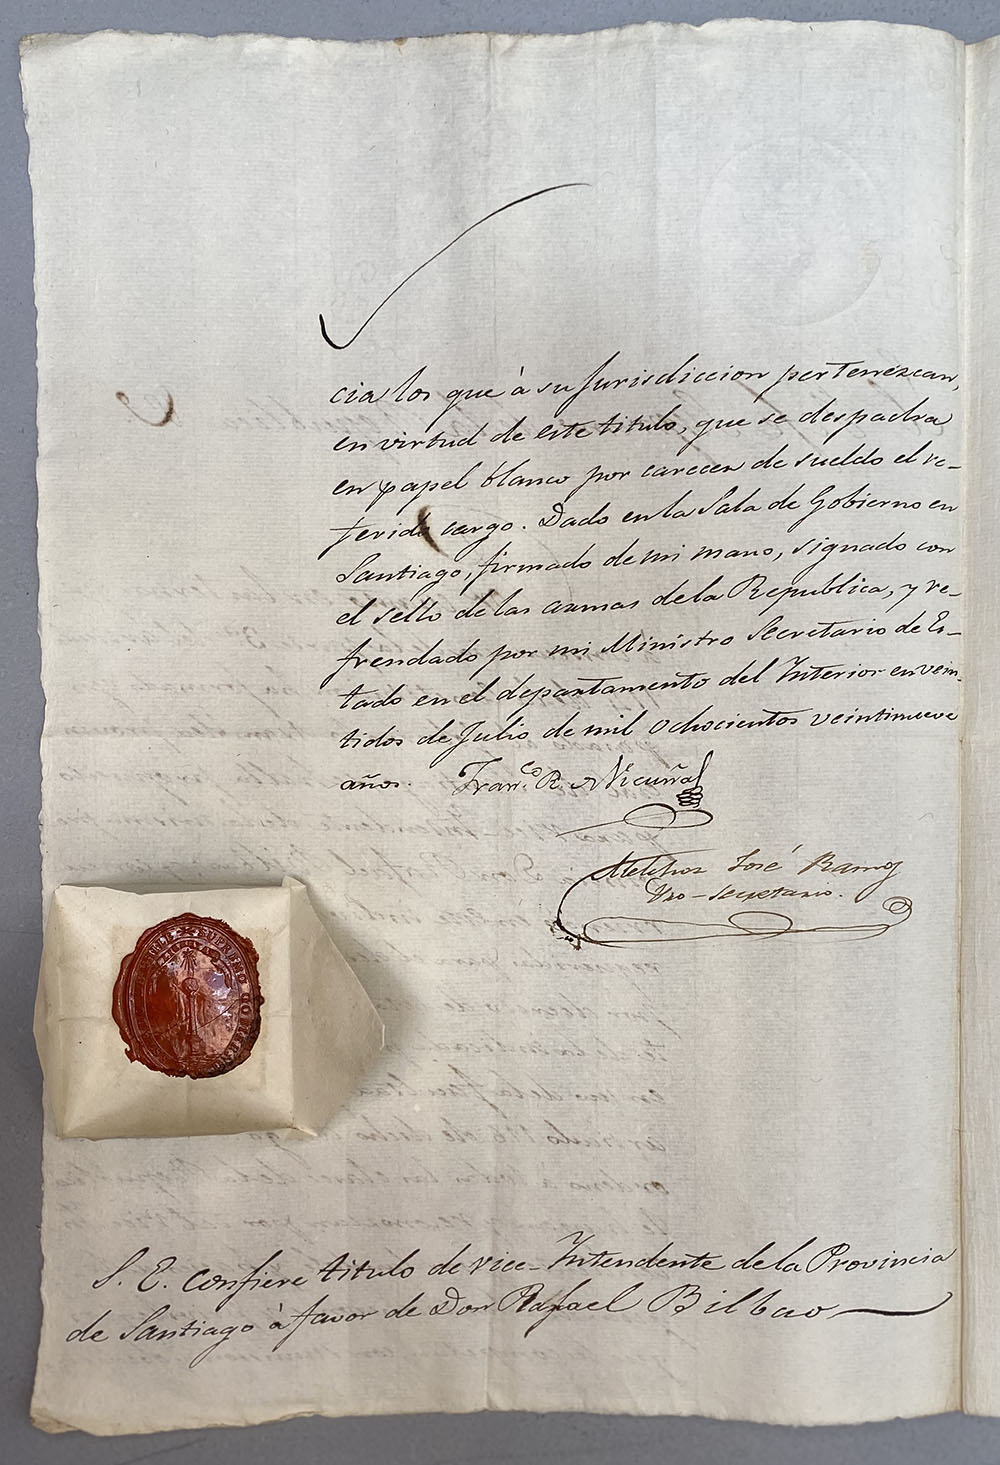 cia los que à su jurisdiccion pertenezcan,
en virtud de este titulo, que se despachra
en papel blanco por carecer de sueldo el re-
ferido cargo. Dado en la Sala de Gobierno en
Santiago, firmado de mi mano, signado con
el sello de las armas de la Republica, y re-
frendado por mi Ministro Secretario de Es-
tado en el departamento del Interior en vein-
tidos de Julio de mil ochocientos veintinueve
años. Fran.co R. Vicuña
Melchor José Ramos
Pro-Secretario.
S. E. confiere titulo de vice-Intendente de la Provincia
de Santiago à favor de Don Rafael Bilbao